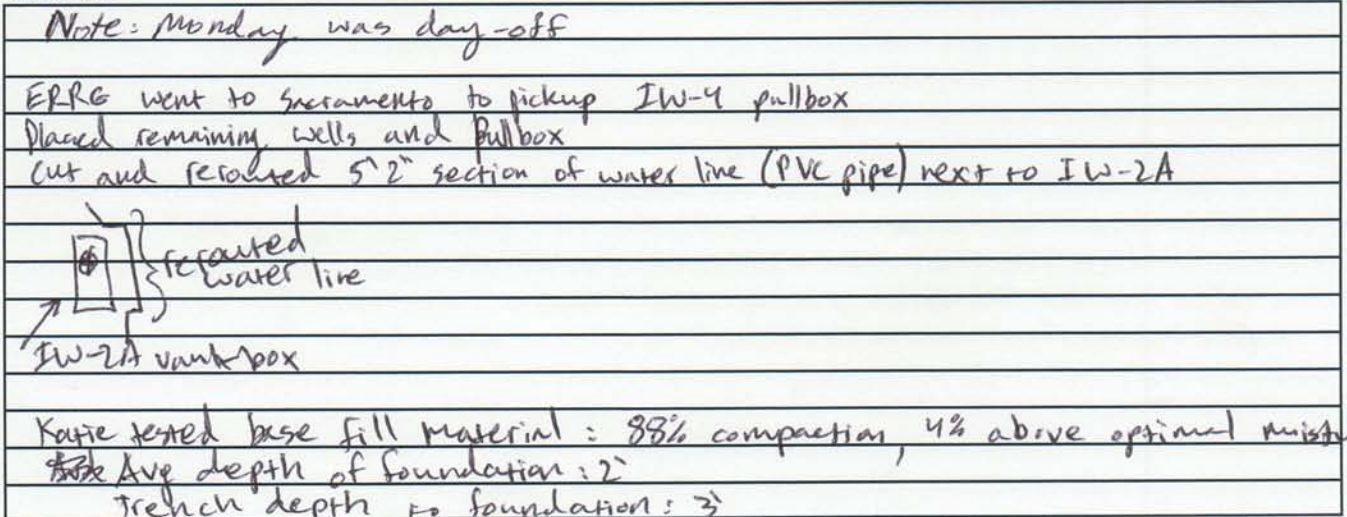 Note: Monday was day-off
ERRG went to Sacramento to pickup IW-4 pullbox
Placed remaining wells and Pullbox
Cut and rerouted 5'2" section of water line (PVC pipe) next to IW-2A
rerouted
water line
IW-2A vault box
Katie tested base fill material: 88% compaction, 4% above optimal moist
Avg depth of foundation: 2'
Trench depth to foundation: 3'